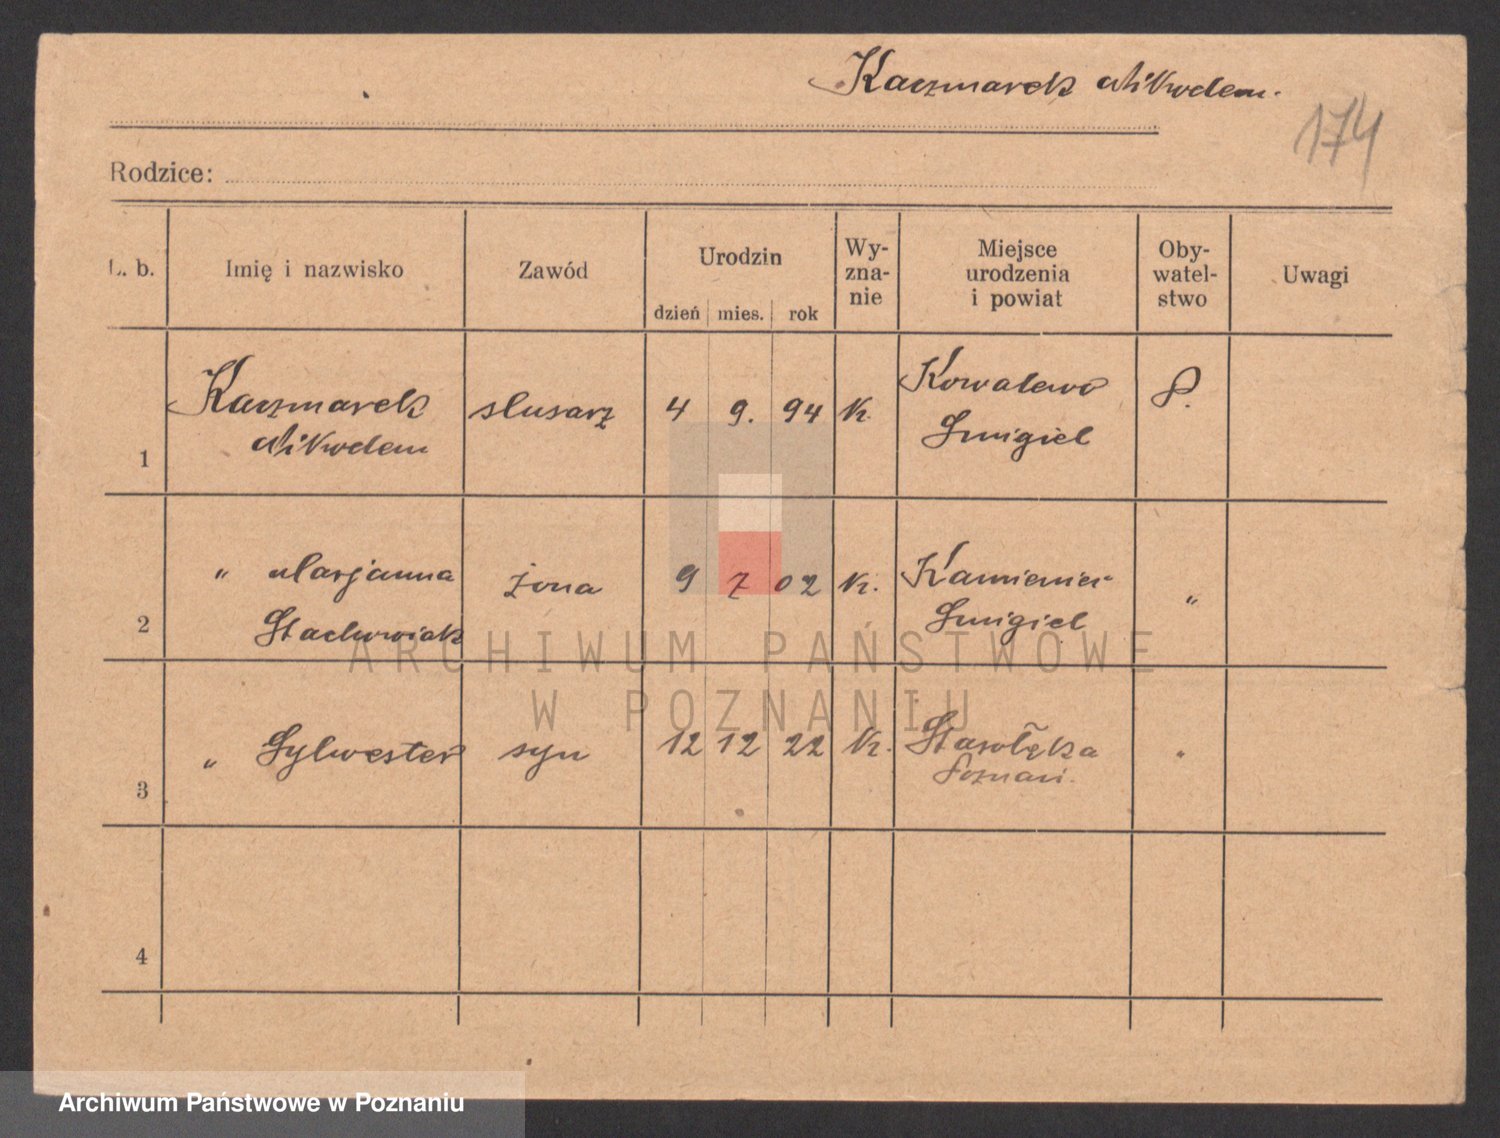 Kaczmarek Nikodem.
174
Rodzice:
L. b.
Imię i nazwisko
Zawód
Urodzin
dzień mies. rok
Wy-
zna-
nie
Miejsce
urodzenia
i powiat
Oby-
watel-
stwo
Uwagi
1
Kaczmarek
Nikodem
slusarz
4 9. 94
k.
Kowalewo
Smigiel
P.
2
„ Marjanna
Stachowiak
żona
9 7 02
k.
Kamieniec
Smigiel
„
3
„ Sylwester
syn
12 12 22
k.
Starołęka
Poznań.
„
4
ARCHIWUM PAŃSTWOWE
W POZNANIU
Archiwum Państwowe w Poznaniu